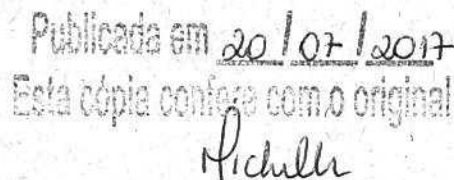 Publicada em 20/07/2017
Esta cópia confere com o original
Michelle